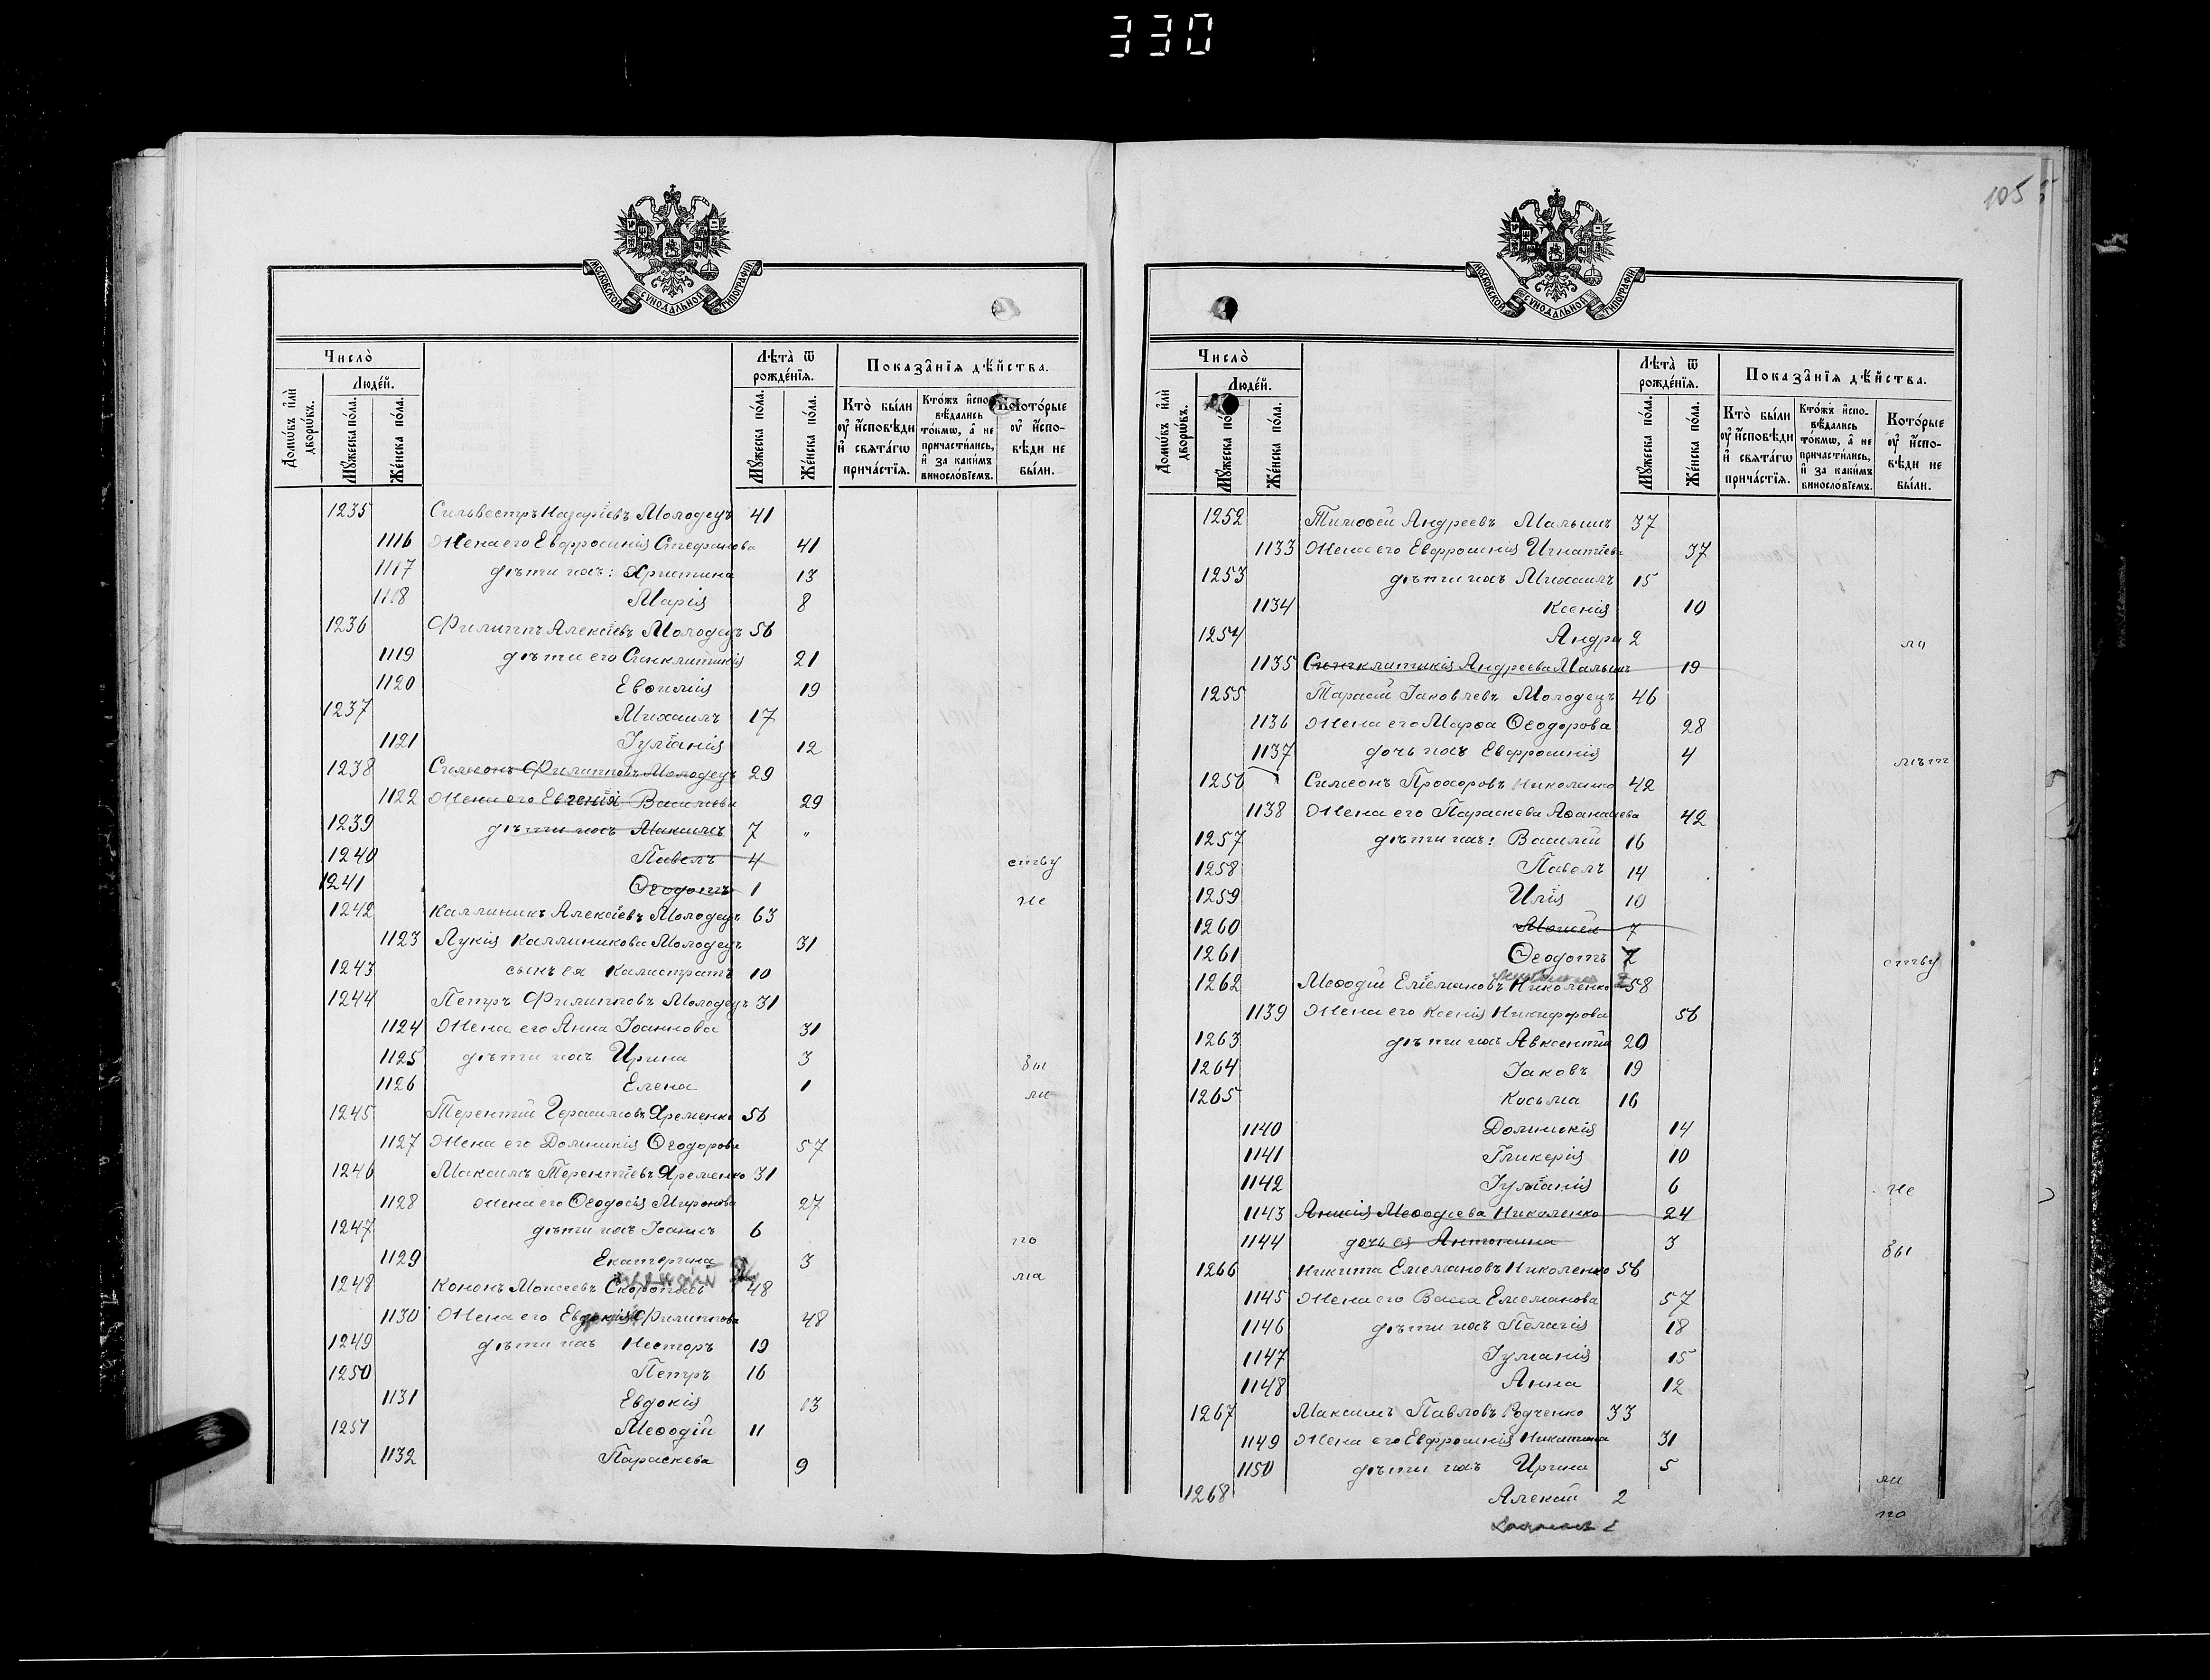 330
МОСКОВСКОЙ СУНОДАЛЬНОЙ ТИПОГРАФІИ
Число̀
Людéй.
Домѡ́въ и҆лѝ дворѡ́въ.
Мꙋ́жеска по́ла.
Же́нска по́ла.
Лѣта̀ ѿ рожде́нїѧ.
Мꙋ́жеска по́ла.
Же́нска по́ла.
Показа̑нїѧ дѣ́йства.
Кто̀ бы́ли ᲂу҆ и҆́сповѣди и҆ свѧта́гѡ прича́стїѧ.
Кто́жъ и҆спо-вѣ́дались то́кмѡ, а҆ не причасти́лись, и҆ за каки́мъ виносло́вїемъ.
Кото́рые ᲂу҆ и҆́спо-вѣди не бы́ли.
1235 Сильвестръ Назаріевъ Молодецъ 41
1116 Жена его Евфросинія Стефанова 41
1117 дѣти ихъ: Христина 13
1118 Марія 8
1236 Филиппъ Алексіевъ Молодецъ 56
1119 дѣти его Синклитикія 21
1120 Евѳимія 19
1237 Михаилъ 17
1121 Іуліанія 12
1238 Симеонъ Филипповъ Молодецъ 29
1122 Жена его Евгенія Васильева 29
1239 дѣти ихъ Максимъ 7 "
1240 Павелъ 4 ству
1241 Ѳеодотъ 1
1242 Каллиникъ Алексіевъ Молодецъ 63 не
1123 Лукія Каллиникова Молодецъ 31
1243 сынъ ея Калистратъ 10
1244 Петръ Филипповъ Молодецъ 31
1124 Жена его Анна Іоаннова 31
1125 дѣти ихъ Ирина 3 бы
1126 Елена 1 ли
1245 Терентій Герасимовъ Яременко 56
1127 Жена его Домникія Ѳеодорова 57
1246 Максимъ Терентіевъ Яременко 31
1128 Жена его Ѳеодосія Миронова 27
1247 дѣти ихъ Іоаннъ 6 по
1129 Екатерина 3
1248 Кононъ Моисеевъ 48 ма
1130 Жена его Евдокія Филиппова 48
1249 дѣти ихъ Несторъ 19
1250 Петръ 16
1131 Евдокія 13
1251 Меѳодій 11
1132 Параскева 9
105
МОСКОВСКОЙ СУНОДАЛЬНОЙ ТИПОГРАФІИ
Число̀
Людéй.
Домѡ́въ и҆лѝ дворѡ́въ.
Мꙋ́жеска по́ла.
Же́нска по́ла.
Лѣта̀ ѿ рожде́нїѧ.
Мꙋ́жеска по́ла.
Же́нска по́ла.
Показа̑нїѧ дѣ́йства.
Кто̀ бы́ли ᲂу҆ и҆́сповѣди и҆ свѧта́гѡ прича́стїѧ.
Кто́жъ и҆спо-вѣ́дались то́кмѡ, а҆ не причасти́лись, и҆ за каки́мъ виносло́вїемъ.
Кото́рые ᲂу҆ и҆́спо-вѣди не бы́ли.
1252 Тимоѳей Андреевъ Малышъ 37
1133 Жена его Евфросинія Игнатіева 37
1253 дѣти ихъ Михаилъ 15
1134 Ксенія 10
1254 Андрей 2 ли
1135 Синклитикія Андреева Малышъ 19
1255 Тарасій Іаковлевъ Молодецъ 46
1136 Жена его Марѳа Ѳеодорова 28
1137 дочь ихъ Евфросинія 4 лѣт
1256 Симеонъ Прохоровъ Николенко 42
1138 Жена его Параскева Аѳанасіева 42
1257 дѣти ихъ: Василій 16
1258 Павелъ 14
1259 Илія 10
1260 Моисей 7
1261 Ѳеодотъ 2 ству
1262 Меѳодій Емеліановъ Николенко 58
1139 Жена его Ксенія Никифорова 56
1263 дѣти ихъ Авксентій 20
1264 Іаковъ 19
1265 Косьма 16
1140 Домникія 14
1141 Гликерія 10
1142 Іуліанія 6 не
1143 Анисія Меѳодіева Николенко 24
1144 дочь ея Антонина 3 бы
1266 Никита Емеліановъ Николенко 56
1145 Жена его Васса Емеліанова 57
1146 дѣти ихъ Пелагія 18
1147 Іуліанія 15
1148 Анна 12
1267 Максимъ Павловъ Родченко 33
1149 Жена его Евфросинія Никитина 31
1150 дѣти ихъ Ирина 5 ли
1268 Алексій 2 по